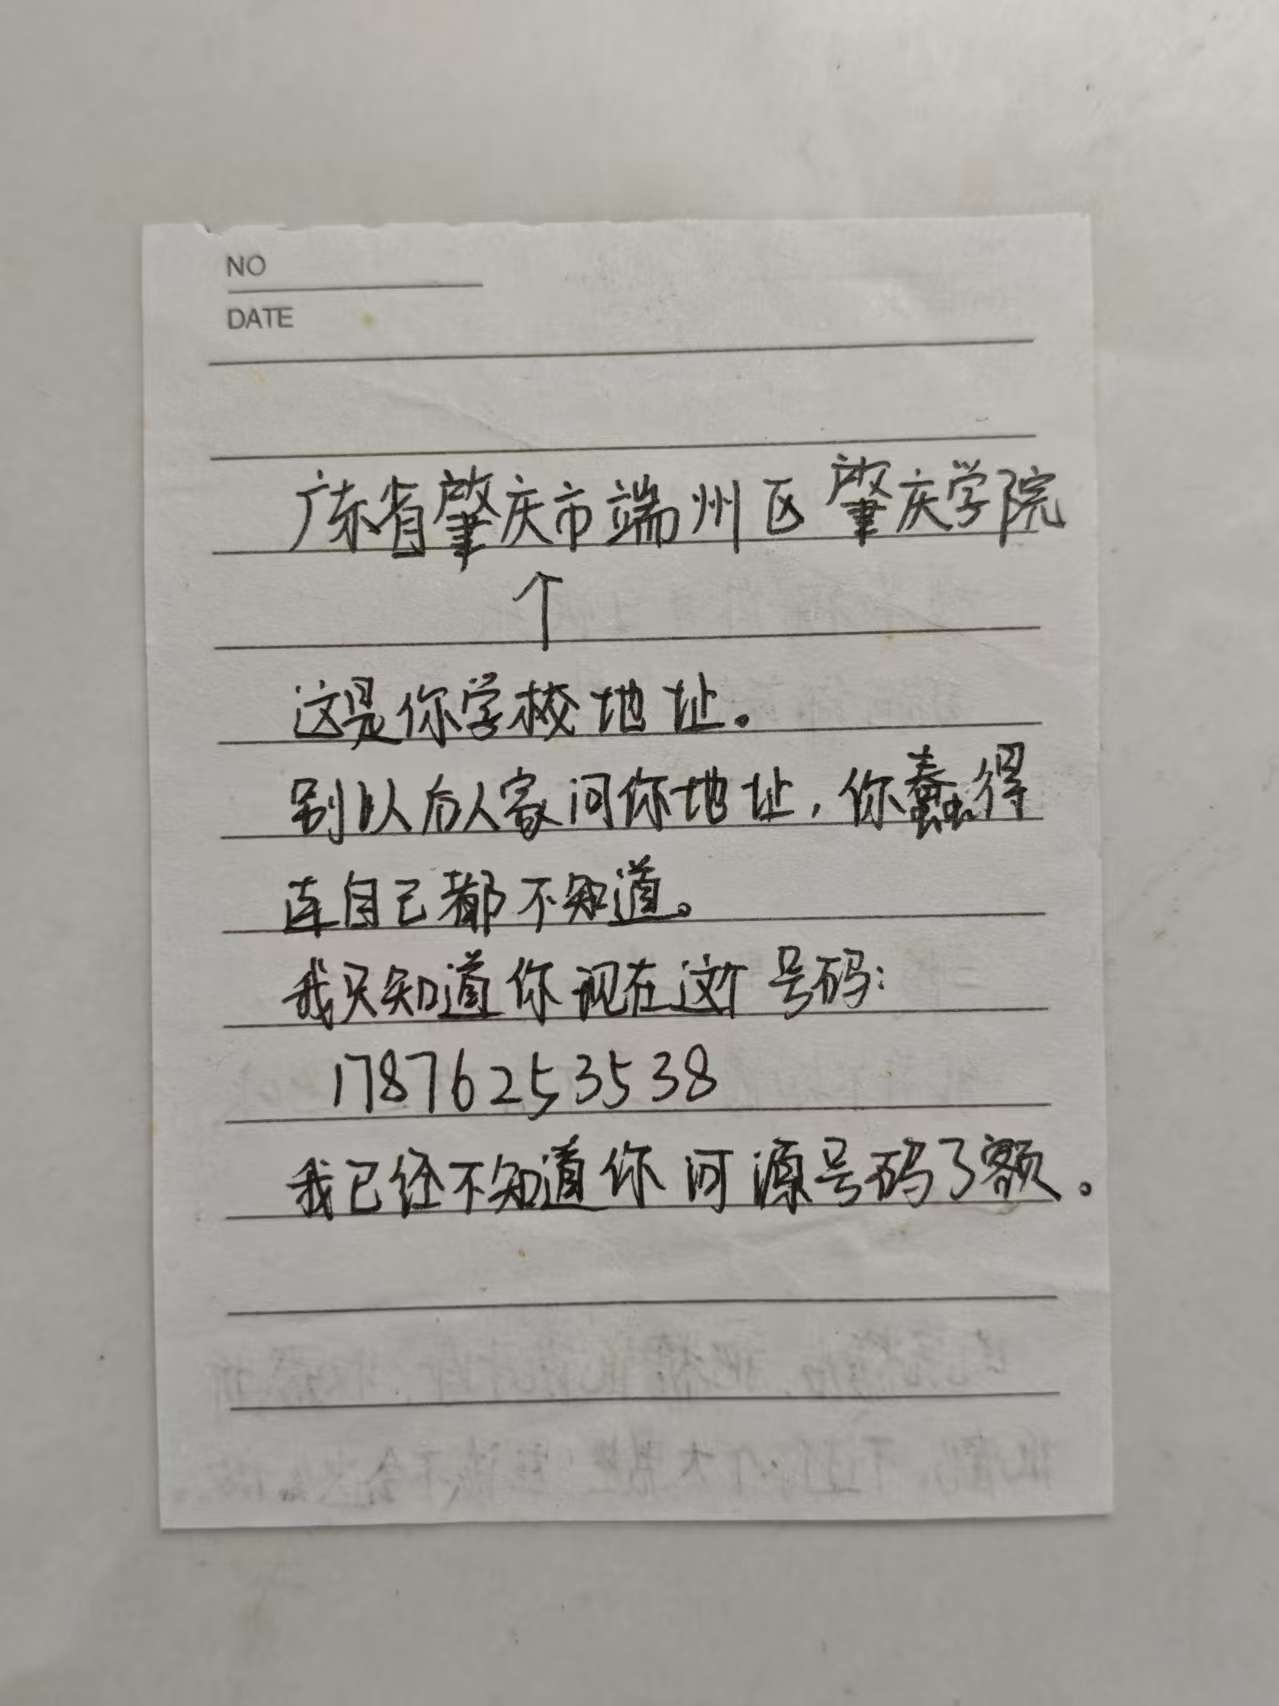 NO
DATE
广东省肇庆市端州区肇庆学院
↑
这是你学校地址。
别以后人家问你地址，你蠢得
连自己都不知道。
我只知道你现在这个号码：
17876253538
我已经不知道你河源号码了额。